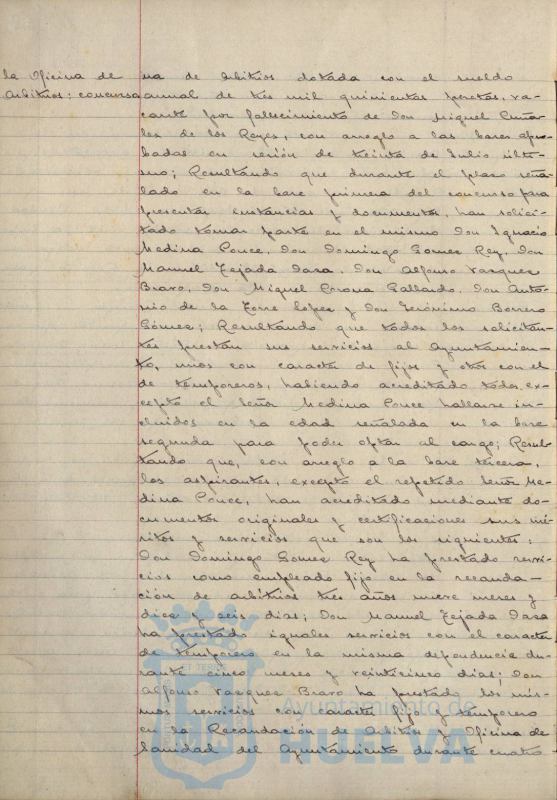 la Oficina de
Arbitrios: concurso
na de Arbitrios dotada con el sueldo
anual de tres mil quinientas pesetas, va-
cante por fallecimiento de Don Miguel
les de los Reyes, con arreglo a las bases apro-
badas en sesión de treinta de Julio últi-
mo; Resultando que durante el plazo seña-
lado en la base primera del concurso para
presentar instancias y documentos, han solici-
tado tomar parte en el mismo Don Ignacio
Medina Ponce, Don Domingo Gomez Rey, Don
Manuel Tejada Daza, Don Alfonso Vazquez
Bravo, Don Miguel Corona Gallardo, Don Anto-
nio de la Torre Lopez y Don Jerónimo Borrero
Gómez; Resultando que todos los solicitan-
tes prestan sus servicios al Ayuntamien-
to, unos con caracter de fijos y otros con el
de temporeros, habiendo acreditado todos, ex-
cepto el Señor Medina Ponce hallarse in-
cluidos en la edad señalada en la base
segunda para poder optar al cargo; Resul-
tando que, con arreglo a la base tercera,
los aspirantes, excepto el repetido Señor Me-
dina Ponce, han acreditado mediante do-
cumentos originales y certificaciones sus mé-
ritos y servicios que son los siguientes:
Don Domingo Gomez Rey ha prestado servi-
cios como empleado fijo en la recauda-
ción de arbitrios tres años nueve meses y
diez y seis dias; Don Manuel Tejada Daza
ha prestado iguales servicios con el caracter
de temporero en la misma dependencia du-
rante cinco meses y veinticinco dias; Don
Alfonso Vazquez Bravo ha prestado los mis-
mos servicios con caracter fijo y temporero
en la Recaudación de Arbitrios y Oficina de
Sanidad del Ayuntamiento durante cuatro
Ayuntamiento de
HUELVA